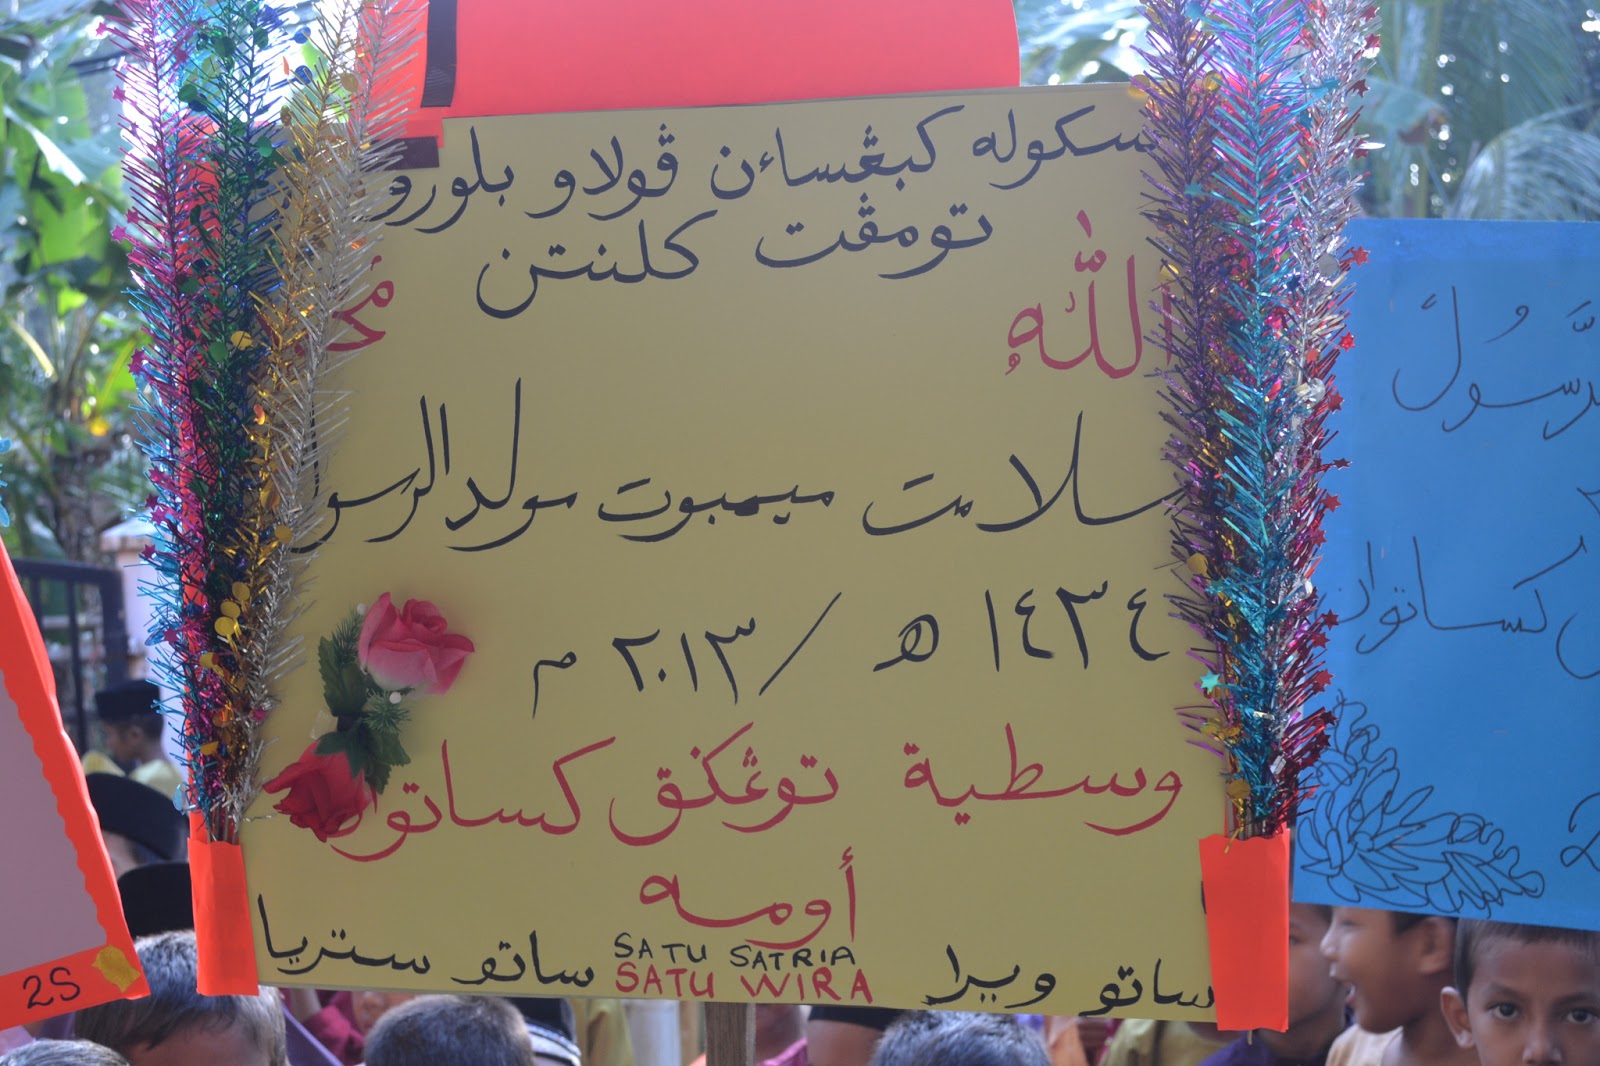 سكوله كبڠساءن ڤولاو بلورو
تومڤت كلنتن
الله
سلامت ميمبوت مولدالرسول
١٤٣٤ ه / ٢٠١٣ م
وسطية توڠكق كساتوان
أومه
SATU SATRIA
SATU WIRA
ساتو ويرا ساتو ستريا
كساتوان
2S